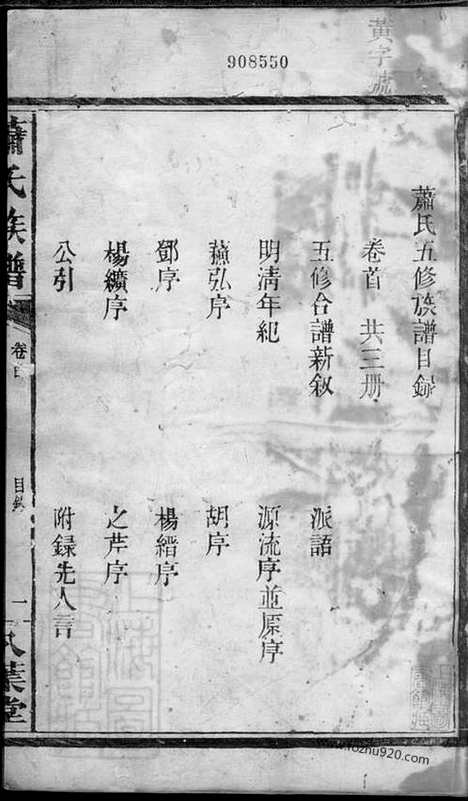 908550
黃字號
蕭氏五修族譜目録
卷首 共三册
五修合譜新敘 派語
明清年紀 源流序並原序
蘓弘序 胡序
鄧序 楊縉序
楊纘序 之芹序
公引 附録先人言
蕭氏族譜
卷首
目録
一
八葉堂
www.fozhu920.com